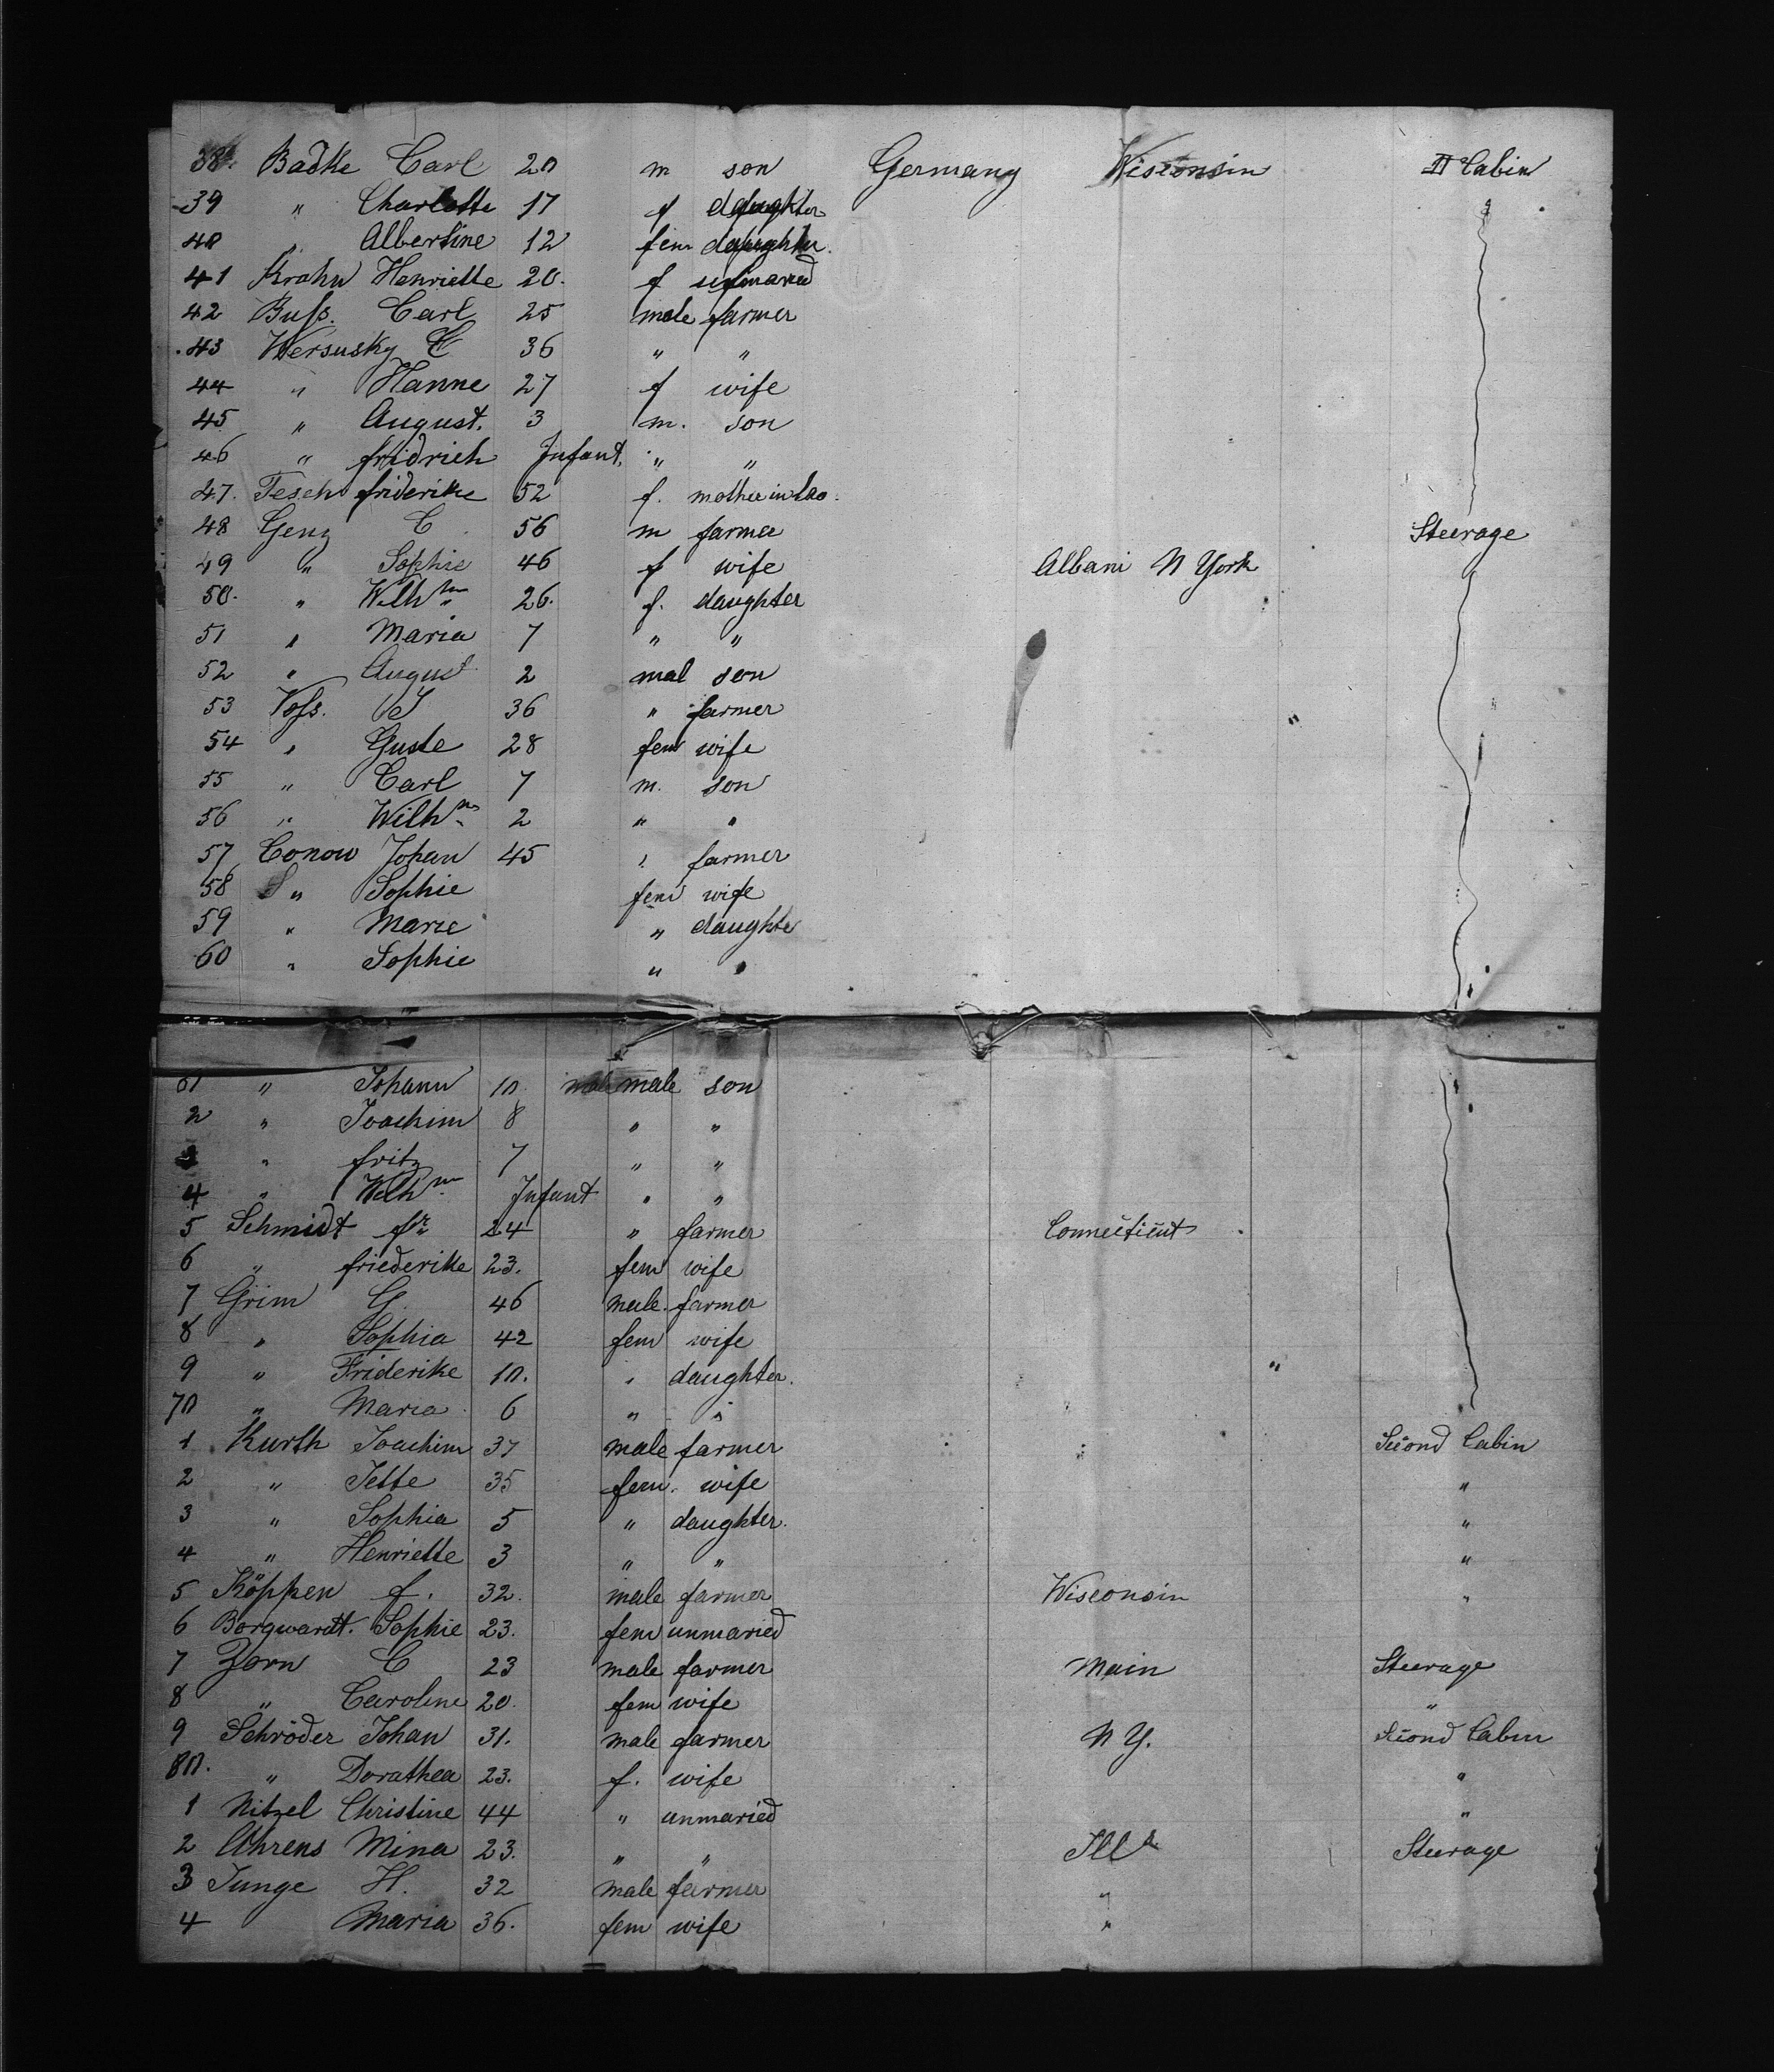 38. Badke Carl 20 m son Germany Wisconsin II Cabin
39 " Charlotte 17 f daughter
40 " Albertine 12 fem daughter
41 Krahn Henriette 20. f unmaried
42 Buſs. Carl 25 male farmer
43 Wersusky C 36 " "
44 " Hanne 27 f wife
45 " August. 3 m. son
46 " fridrich Infant. " "
47. Tesch friderike 52 f. mother in lao.
48 Genz C 56 m farmer Steerage
49 " Sophie 46 f wife Albani N York
50. " Wilhm 26. f. daughter
51 " Maria 7 " "
52 " August 2 mal son
53 Voſs. J 36 " farmer "
54 " Guste 28 fem wife
55 " Carl 7 m. son
56 " Wilhm 2 " "
57 Conow Johan 45 " farmer
58 " Sophie fem wife
59 " Marie " daughter
60 " Sophie " "
61 " Johann 10 male male son
2 " Joachim 8 " "
3 " fritz 7 " "
4 " Wilhm Infant " "
5 Schmidt fr 24 " farmer Connecticut
6 " friederike 23. fem wife
7 Grim G. 46 male farmer
8 " Sophia 42 fem wife
9 " Friderike 10. " daughter. "
70 " Maria 6 " "
1 Kurth Joachim 37 male farmer Second Cabin
2 " Jette 35 fem. wife "
3 " Sophia 5 " daughter. "
4 " Henriette 3 " " "
5 Köppen f. 32. male farmer Wisconsin "
6 Borgwardt. Sophie 23. fem unmaried
7 Zorn C 23 male farmer Main Steerage
8 " Caroline 20. fem wife "
9 Schröder Johan 31. male farmer N Y. Second Cabin
80. " Dorathea 23. f. wife "
1 Nitzel Christine 44 " unmaried "
2 Ahrens Mina 23. " " Ills Steerage
3 Junge H. 32 male farmer "
4 Maria 36. fem wife "